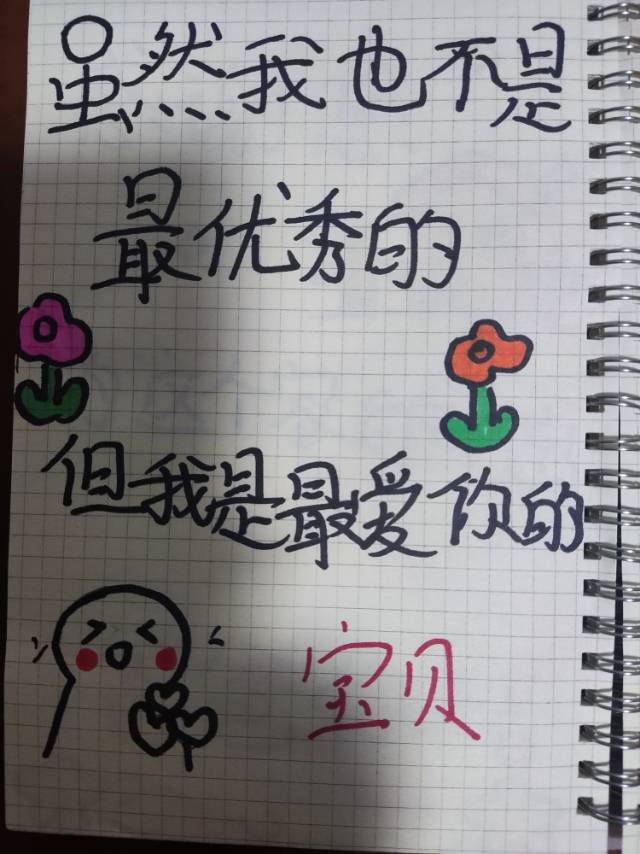 虽然我也不是
最优秀的
但我是最爱你的
宝贝